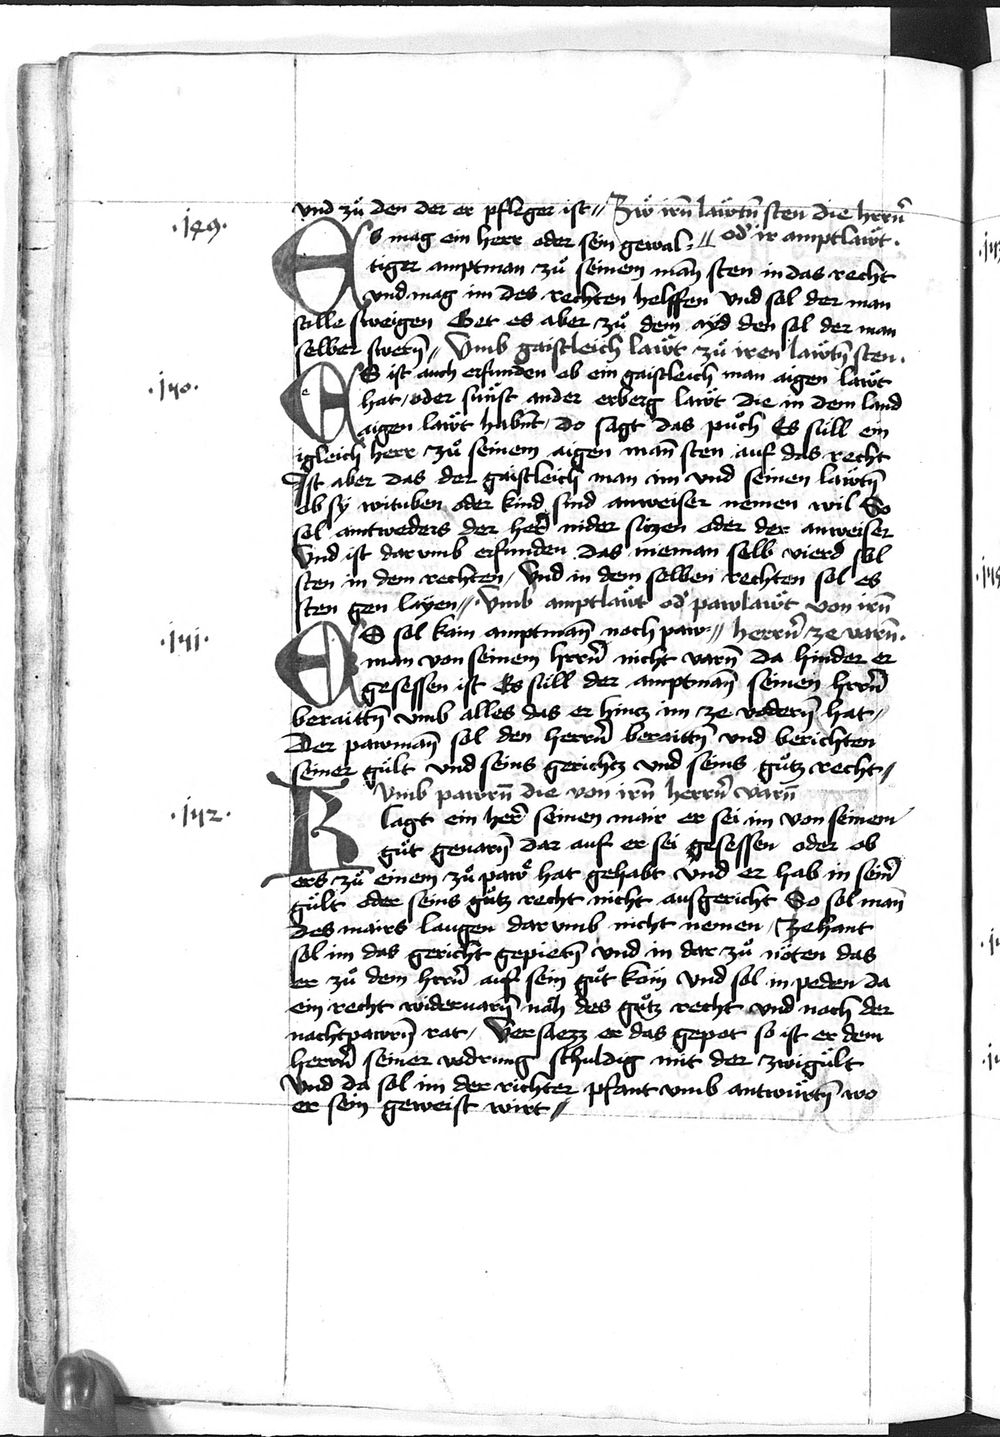 vnd zů den der er pfleger ist // Zw̓ irn̄ läwtn̄ sten die herrn̄
.149.
Es mag ein herr oder sein gewal= // od' ir amptläwt.
tiger amptman zů seinem man̄ sten in das recht
vnd mag im des rechten helffen vnd sol der man
stille sweigen Get es aber zů dem ayd den sol der man
selber swern̄ // Vmb gaistleich läwt zů iren läwtn̄ sten.
.150.
Es ist auch erfunden ob ein gaistleich man aigen läwt
hat / oder sünst ander erberg läwt die in dem land
aigen läwt habnt / Do sagt das půch Es süll ein
igleich herr zů seinem aigen man̄ sten auf das recht
Ist aber das der gaistleich man im vnd seinen läwtn̄
ob sy wituben oder kind sind anweiser nemen wil So
sol antweders der her̄ nider sitzen oder der anweiser
Vnd ist darvmb erfunden das nieman selb vierd sol
sten in dem rechten / Vnd in dem selben rechten sol es
sten gen layen // Vmb amptläwt od' pawläwt von irn̄
.151.
Es sol kain amptman̄ noch paw= // herrn̄ ze varn̄.
man von seinem hrrn̄ nicht varn̄ da hinder er
gesessen ist Es süll der amptman̄ seinen hrrn̄
beraittn̄ vmb alles das er hintz im ze vodern̄ hat /
Der pawman̄ sol den herrn̄ beraittn̄ vnd berichten
seiner gült vnd seins gerichtz vnd seins gůtz recht /
Vmb pawrn̄ die von irn̄ herrn̄ varn̄
.152.
Klagt ein her̄ seinen mair er sei im von seinem
gůt geuarn̄ dar auf er sei gesessen oder ob
ers zů einem zůpaw̓ hat gehabt vnd er hab in sein̄
gült oder seins gůtz recht nicht ausgericht So sol man̄
des mairs laugen darvmb nicht nemen / Zehant
sol im das gericht gepietn̄ vnd in dar zů nöten das
er zů dem hrrn̄ auf sein gůt köm vnd sol in peden da
ein recht wideruarn̄ näh des gůtz recht vnd nach der
nachtpawrn̄ rat / Versäezz er das gepot so ist er dem
herrn̄ seiner vodrung schuldig mit der zwigült
Vnd da sol im der richter pfant vmb antwürtn̄ wo
er sein geweist wirt //